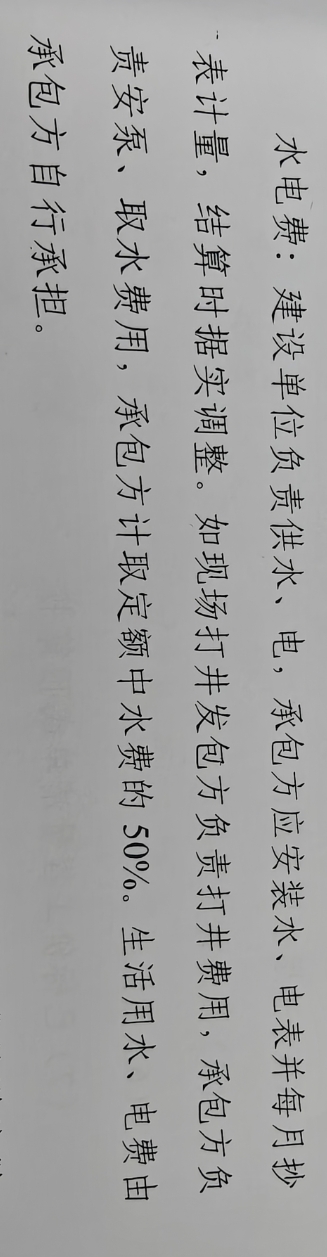 水电费：建设单位负责供水、电，承包方应安装水、电表并每月抄
表计量，结算时据实调整。如现场打井发包方负责打井费用，承包方负
责安泵、取水费用，承包方计取定额中水费的 50%。生活用水、电费由
承包方自行承担。